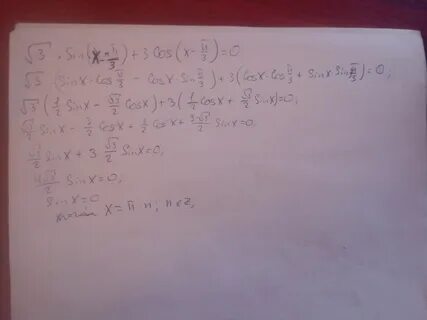 √3 · Sin(x - π/3) + 3 Cos(x - π/3) = 0
√3 (Sinx · Cos π/3 - Cosx · Sin π/3) + 3(Cosx · Cos π/3 + Sinx Sin π/3) = 0;
√3 (1/2 Sinx - √3/2 Cosx) + 3(1/2 Cosx + √3/2 Sinx) = 0;
√3/2 Sinx - 3/2 Cosx + 3/2 Cosx + 3√3/2 Sinx = 0;
√3/2 Sinx + 3 √3/2 Sinx = 0;
4√3/2 Sinx = 0;
Sinx = 0
x = π n; n ∈ Z,